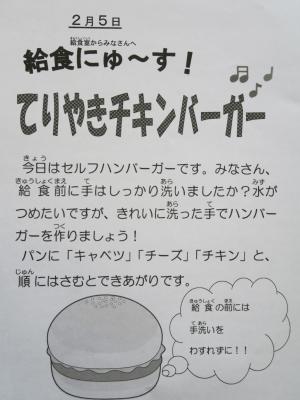 2月5日
給食室からみなさんへ
給食にゅ～す！
てりやきチキンバーガー
今日はセルフハンバーガーです。みなさん、
給食前に手はしっかり洗いましたか？水が
つめたいですが、きれいに洗った手でハンバー
ガーを作りましょう！
パンに「キャベツ」「チーズ」「チキン」と、
順にはさむとできあがりです。
給食の前には
手洗いを
わすれずに！！